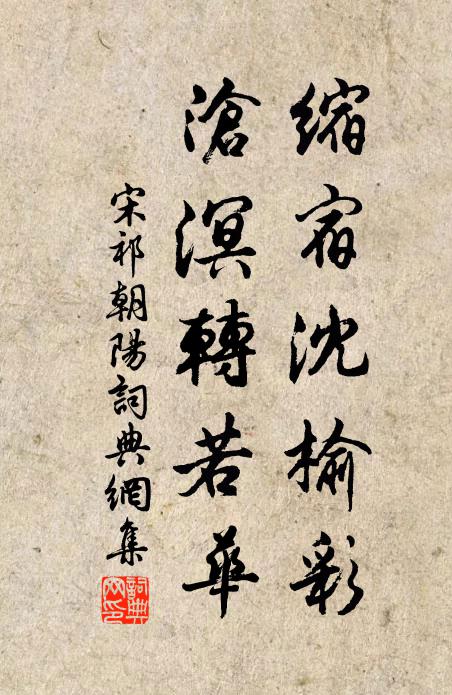 缩宿沈榆彩
滄溟轉若華
宋祁朝陽詞典網集
詞典網印